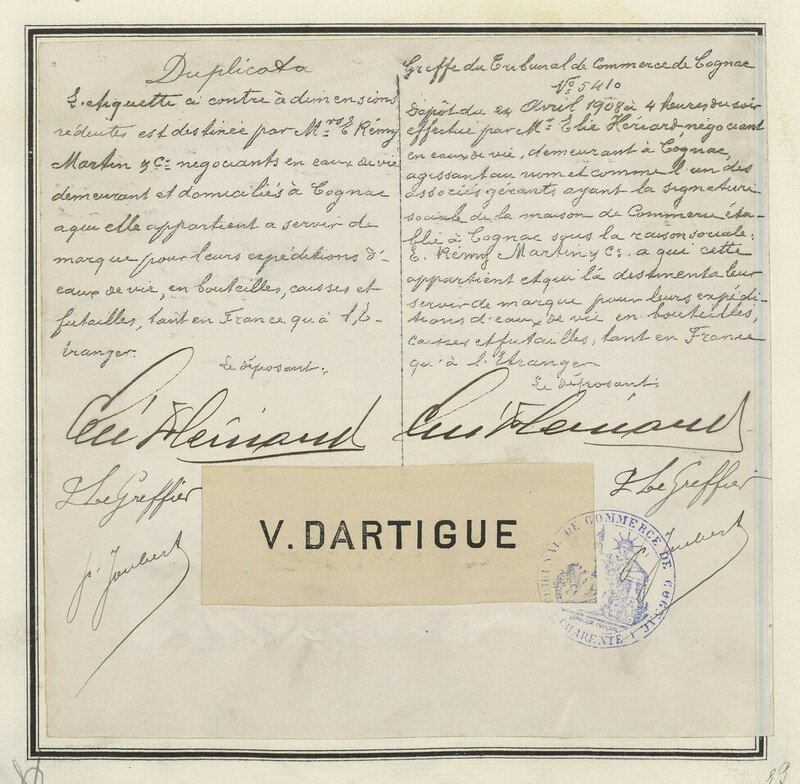 Duplicata
L'etiquette ci contre à dimensions
réduites est destinée par Mrs E. Rémy
Martin & Cie negociants en eaux de vie
demeurant et domiciliés à Cognac
a qui elle appartient a servir de
marque pour leurs expéditions d'-
eaux de vie, en bouteilles, caisses et
futailles, tant en France qu'à l'E-
tranger.
Le déposant:
Elie Hériard
P Le Greffier
Joubert
Greffe du Tribunal de Commerce de Cognac
No 5410
Dépôt du 24 Avril 1908 à 4 heures du soir
effectué par Mr Elie Hériard, négociant
en eaux de vie, demeurant à Cognac,
agissant au nom et comme l'un des
associés gérants ayant la signature
sociale de la maison de Commerce éta-
blie à Cognac sous la raison sociale:
E. Rémy Martin & Cie a qui cette
appartient et qui la destine a leur
servir de marque pour leurs expédi-
tions d'eaux de vie en bouteilles,
caisses et futailles, tant en France
qu'à l'Etranger
Le déposant:
Elie Hériard
P Le Greffier
Joubert
V. DARTIGUE
TRIBUNAL DE COMMERCE DE COGNAC
CHARENTE